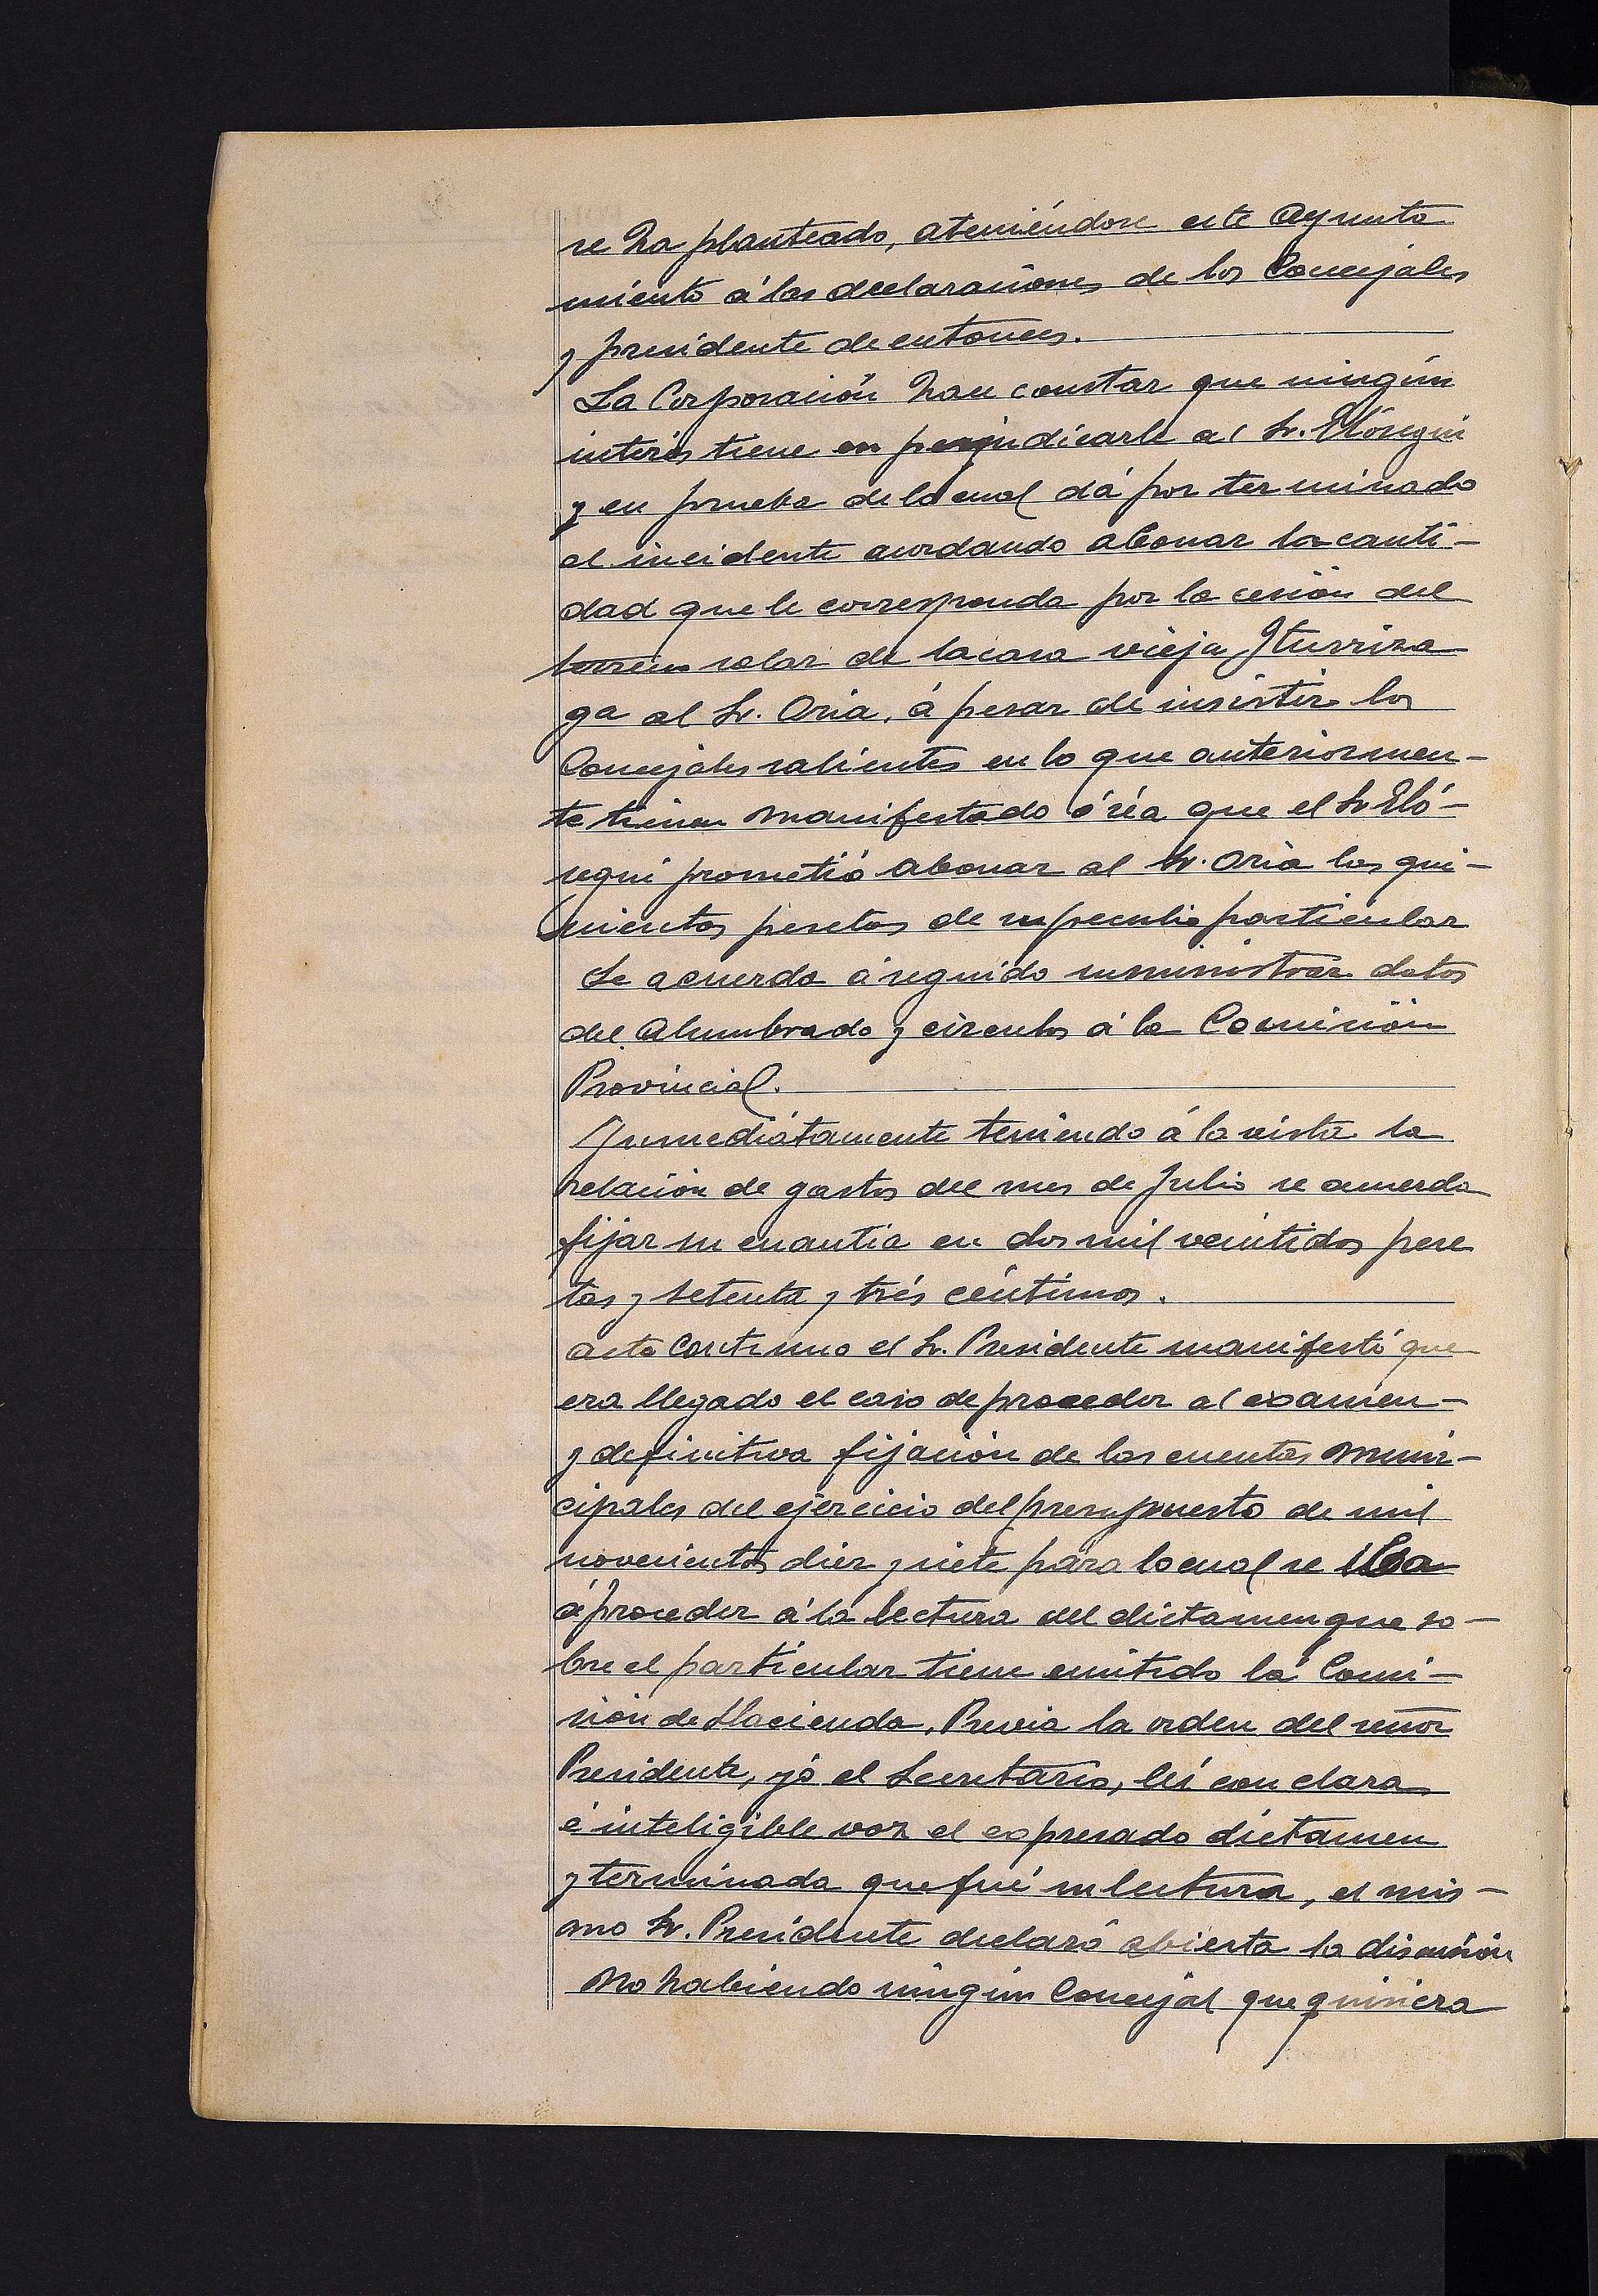 se ha planteado, ateniéndose este Ayunta
miento á las declaraciones de los Concejales
y presidente de entonces.
La Corporación hace constar que ningún
interés tiene en perjudicarle al Sr. Elósegui
y en prueba de lo cual dá por terminado
el incidente acordando abonar la canti-
dad que le corresponda por la cesión del
terreno solar de la casa vieja Iturriza
ga al Sr. Oria, á pesar de insistir los
Concejales salientes en lo que anteriormen-
te tienen manifestado ó séa que el Sr Eló-
segui prometió abonar al Sr. Oria las qui-
nientas pesetas de su peculio particular
Se acuerda á seguido suministrar datos
del Alumbrado y círculos á la Comisión
Provincial.
Inmediátamente teniendo á la vista la
relación de gastos del mes de Julio se acuerda
fijar su cuantia en dos mil veintidos pese
tas y setenta y trés céntimos.
Acto contínuo el Sr. Presidente manifestó que
era llegado el caso de proceder al examen-
y definitiva fijación de las cuentas muni-
cipales del ejercicio del presupuesto de mil
novecientos diez y siete para lo cual se iba
á proceder á la lectura del dictamen que so-
bre el particular tiene emitido la Comi-
sión de Hacienda. Previa la orden del señor
Presidente, yo el Secretario, leí con clara
é inteligible voz el expresado dictamen
y terminada que fué su lectura, el mis-
mo Sr. Presidente declaró abierta la discusión
No habiendo ningún Concejal que quisiera